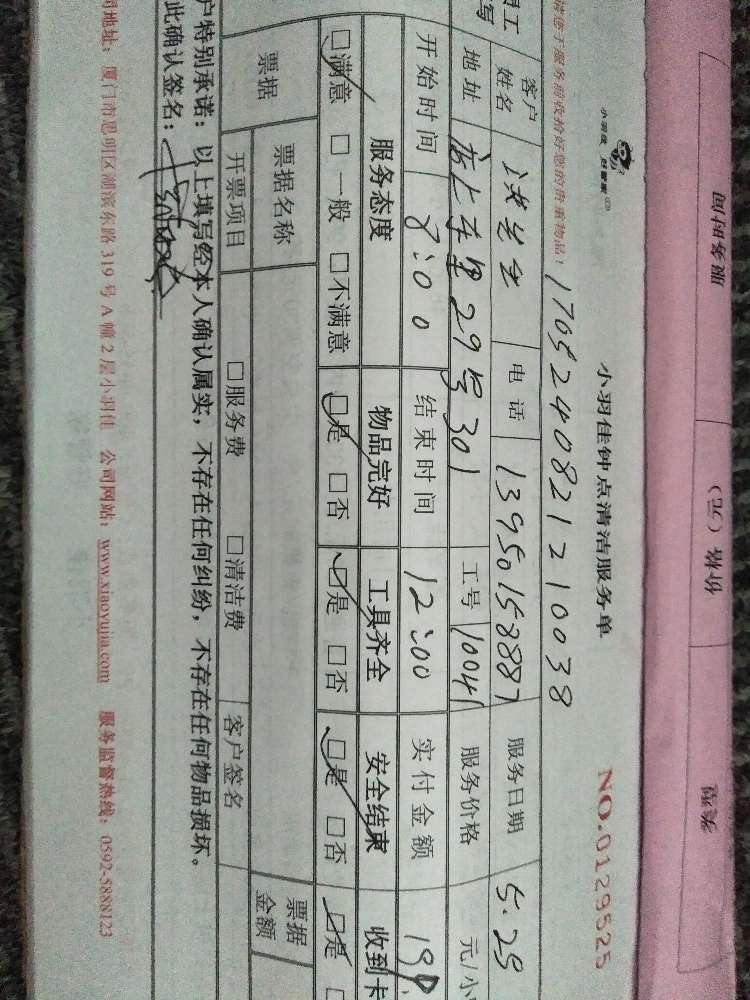 小羽佳钟点清洁服务单
NO.0129525
请您于服务前收拾好您的贵重物品!
170524082121210038
客户姓名 电话 13950158887 服务日期 5.25
地址 29号301 工号 10041 服务价格 元/小
开始时间 8:00 结束时间 12:00 实付金额
服务态度 物品完好 工具齐全 安全结束 收到卡
□满意 □一般 □不满意 □是 □否 □是 □否 □是 □否 □是
票据 票据名称 票据金额
开票项目 □服务费 □清洁费 客户签名
户特别承诺:以上填写经本人确认属实,不存在任何纠纷,不存在任何物品损坏。
此确认签名:
司地址:厦门市思明区湖滨东路319号A幢2层小羽佳 公司网站:www.xiaoyujia.com 服务监督热线:0592-5888123